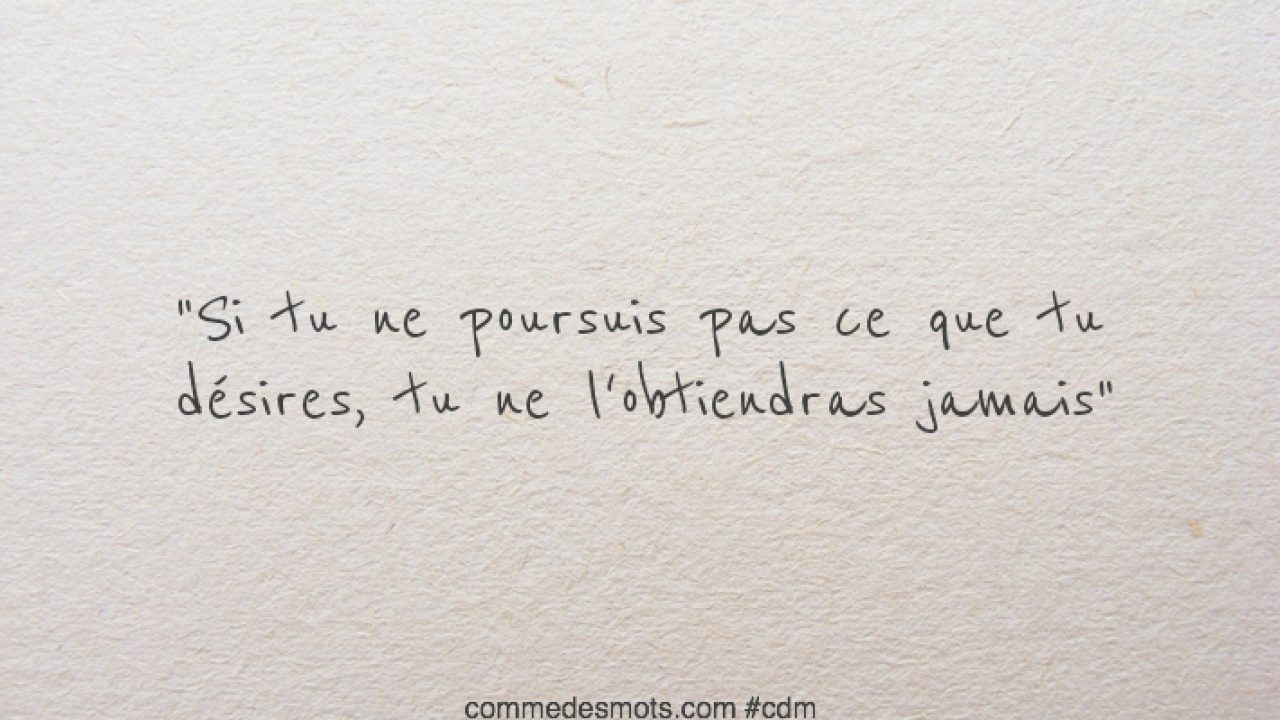 "Si tu ne poursuis pas ce que tu
désires, tu ne l'obtiendras jamais"
commedesmots.com #cdm